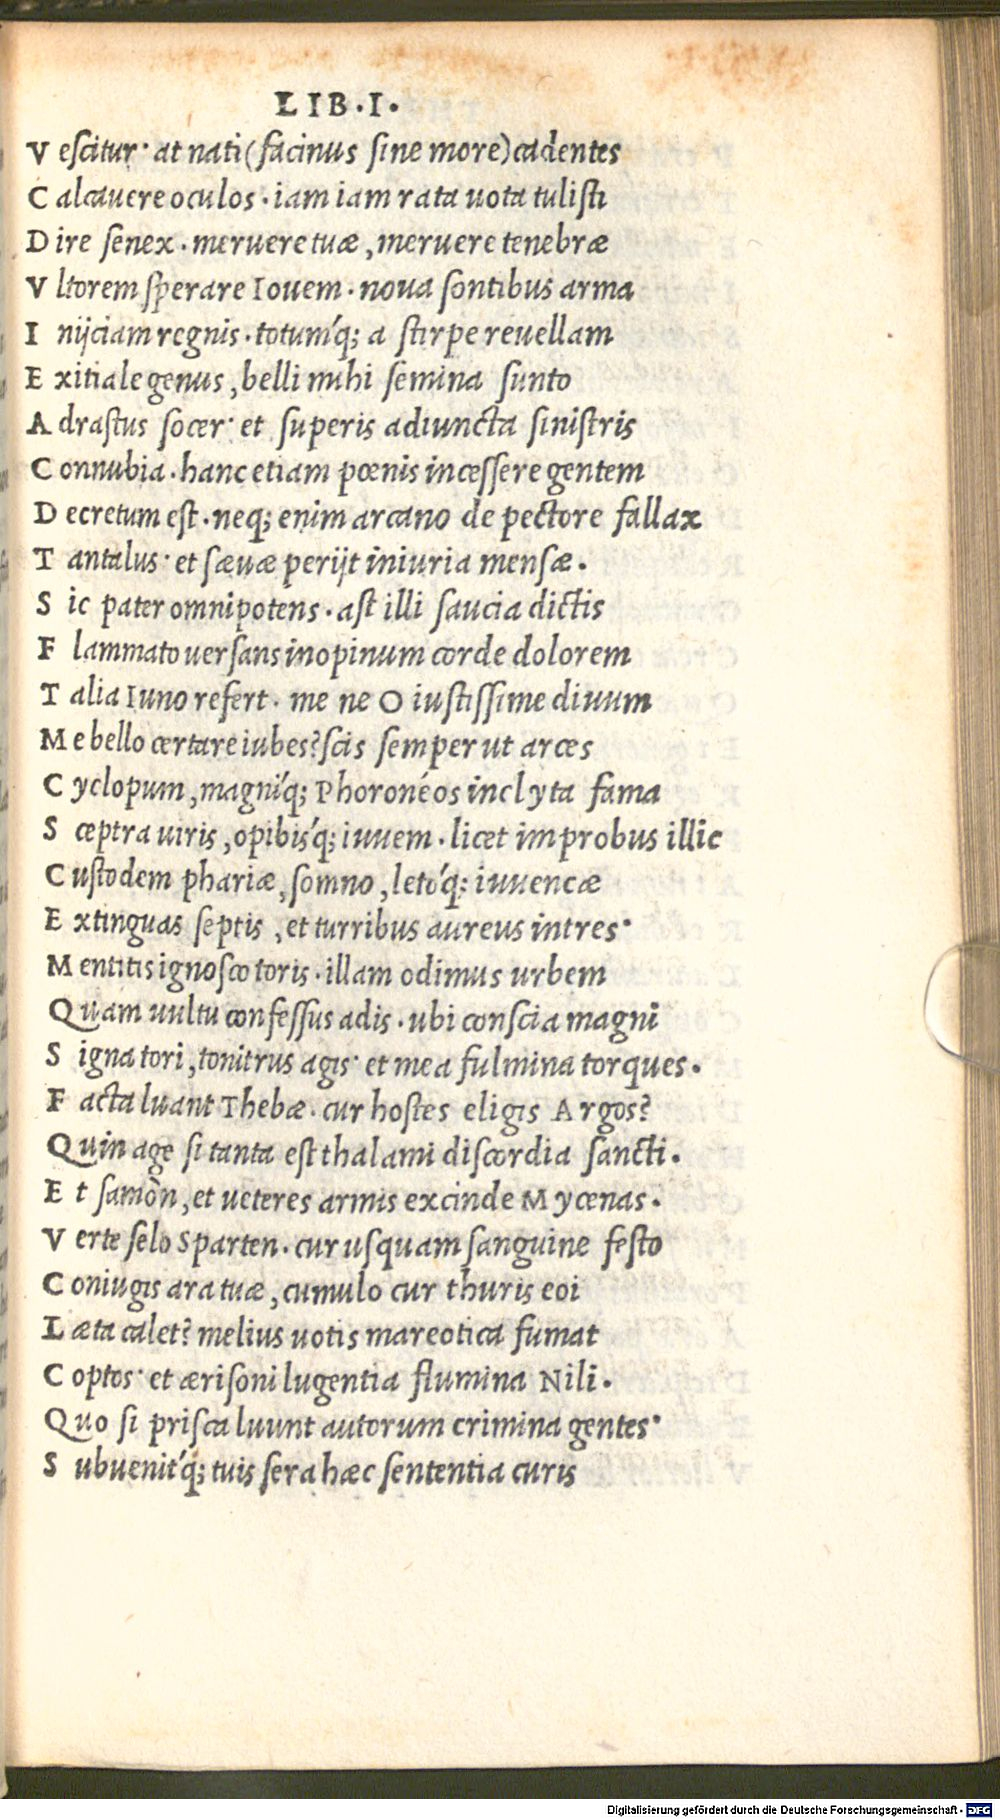 LIB·I·
V escitur· at nati (facinus sine more) cadentes
C alcauere oculos· iam iam rata uota tulisti
D ire senex· meruere tuæ, meruere tenebræ
V ltorem sperare Iouem· noua sontibus arma
I niiciam regnis· totumq́; a stirpe reuellam
E xitiale genus, belli mihi semina sunto
A drastus socer· et superis adiuncta sinistris
C onnubia· hanc etiam pœnis incessere gentem
D ecretum est· neq; enim arcano de pectore fallax
T antalus· et sæuæ periit iniuria mensæ·
S ic pater omnipotens· ast illi saucia dictis
F lammato uersans inopinum corde dolorem
T alia Iuno refert· me ne O iustissime diuum
M e bello certare iubes? scis semper ut arces
C yclopum, magniq́; Phoronéos inclyta fama
S ceptra uiris, opibisq́; iuuem· licet improbus illic
C ustodem phariæ, somno, letoq́; iuuencæ
E xtinguas septis, et turribus aureus intres·
M entitis ignosco toris· illam odimus urbem
Quam uultu confessus adis· ubi conscia magni
S igna tori, tonitrus agis· et mea fulmina torques·
F acta luant Thebæ· cur hostes eligis Argos?
Quin age si tanta est thalami discordia sancti·
E t samon, et ueteres armis excinde Mycenas·
V erte solo Sparten· cur usquam sanguine festo
C oniugis ara tuæ, cumulo cur thuris eoi
L æta calet? melius uotis mareotica fumat
C optos· et ærisoni lugentia flumina Nili·
Quo si prisca luunt autorum crimina gentes·
S ubuenitq́; tuis sera hæc sententia curis
Digitalisierung gefördert durch die Deutsche Forschungsgemeinschaft - DFG